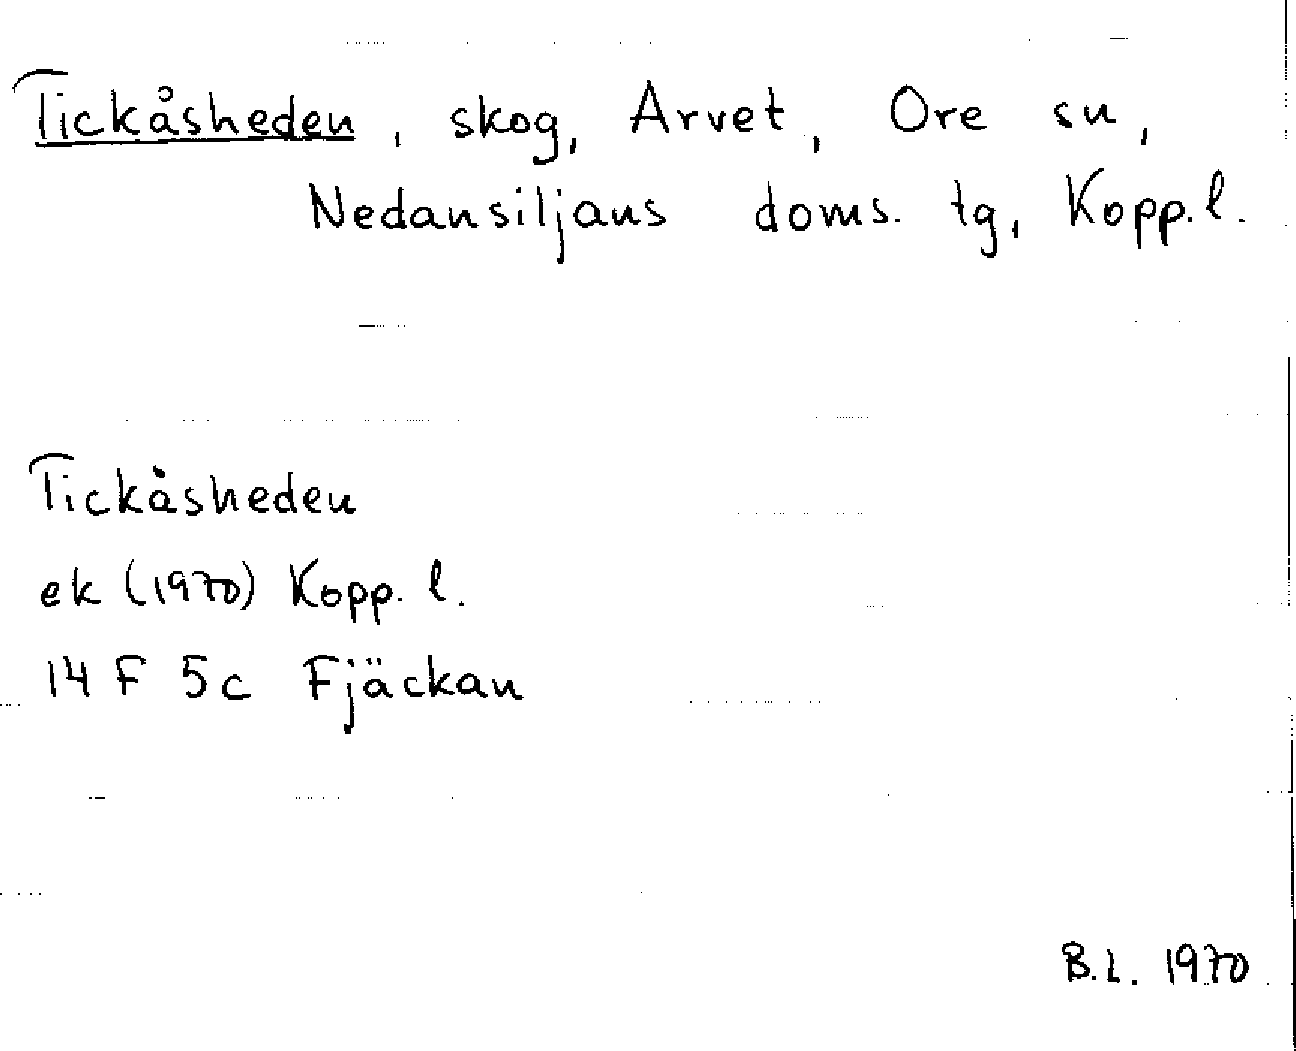 Tickåsheden, skog, Arvet, Ore sn,
Nedansiljans doms. tg, Kopp. l.
Tickåsheden
ek (1970) Kopp. l.
14 F 5c Fjäckan
B.L. 1970